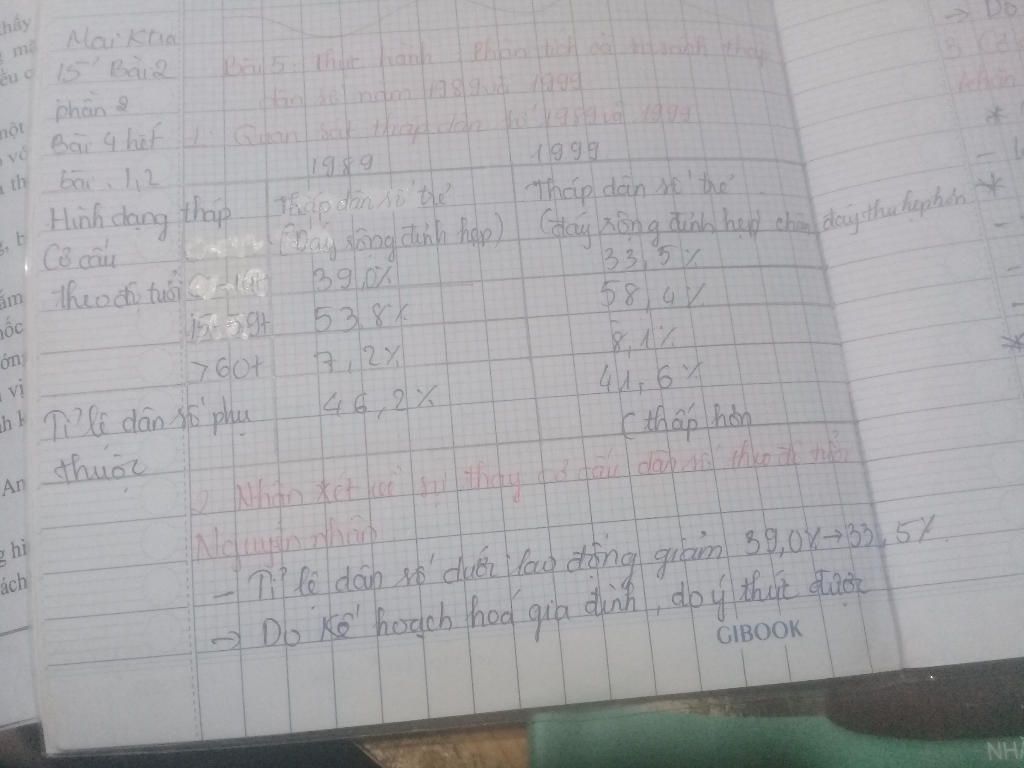 Mai Kha
15' Bài 2
phần 2
Bài 4 hết
bài. 1, 2
Bài 5: thực hành Phân tích và so sánh tháp
dân số năm 1989 và 1999
1. Quan sát tháp dân số 1989 và 1999
1989 1999
Hình dạng tháp Tháp dân số trẻ Tháp dân số trẻ
(Đáy rộng đỉnh hẹp) (đáy rộng đỉnh hẹp chân đáy thu hẹp hơn
Cơ cấu
theo độ tuổi 39,0% 33,5%
15-59t 53,8% 58,4%
>60t 7,2% 8,1%
Tỉ lệ dân số phụ 46,2% 41,6%
thuộc (thấp hơn
2. Nhận xét về sự thay cơ cấu dân số theo độ
Nguyên nhân
- Tỉ lệ dân số dưới lao động giảm 39,0% → 33,5%.
→ Do kế hoạch hoá gia đình, do ý thức được
GIBOOK
→ Do
*
-
*
-
-
*
thấy
một
An
ách
NHÀ